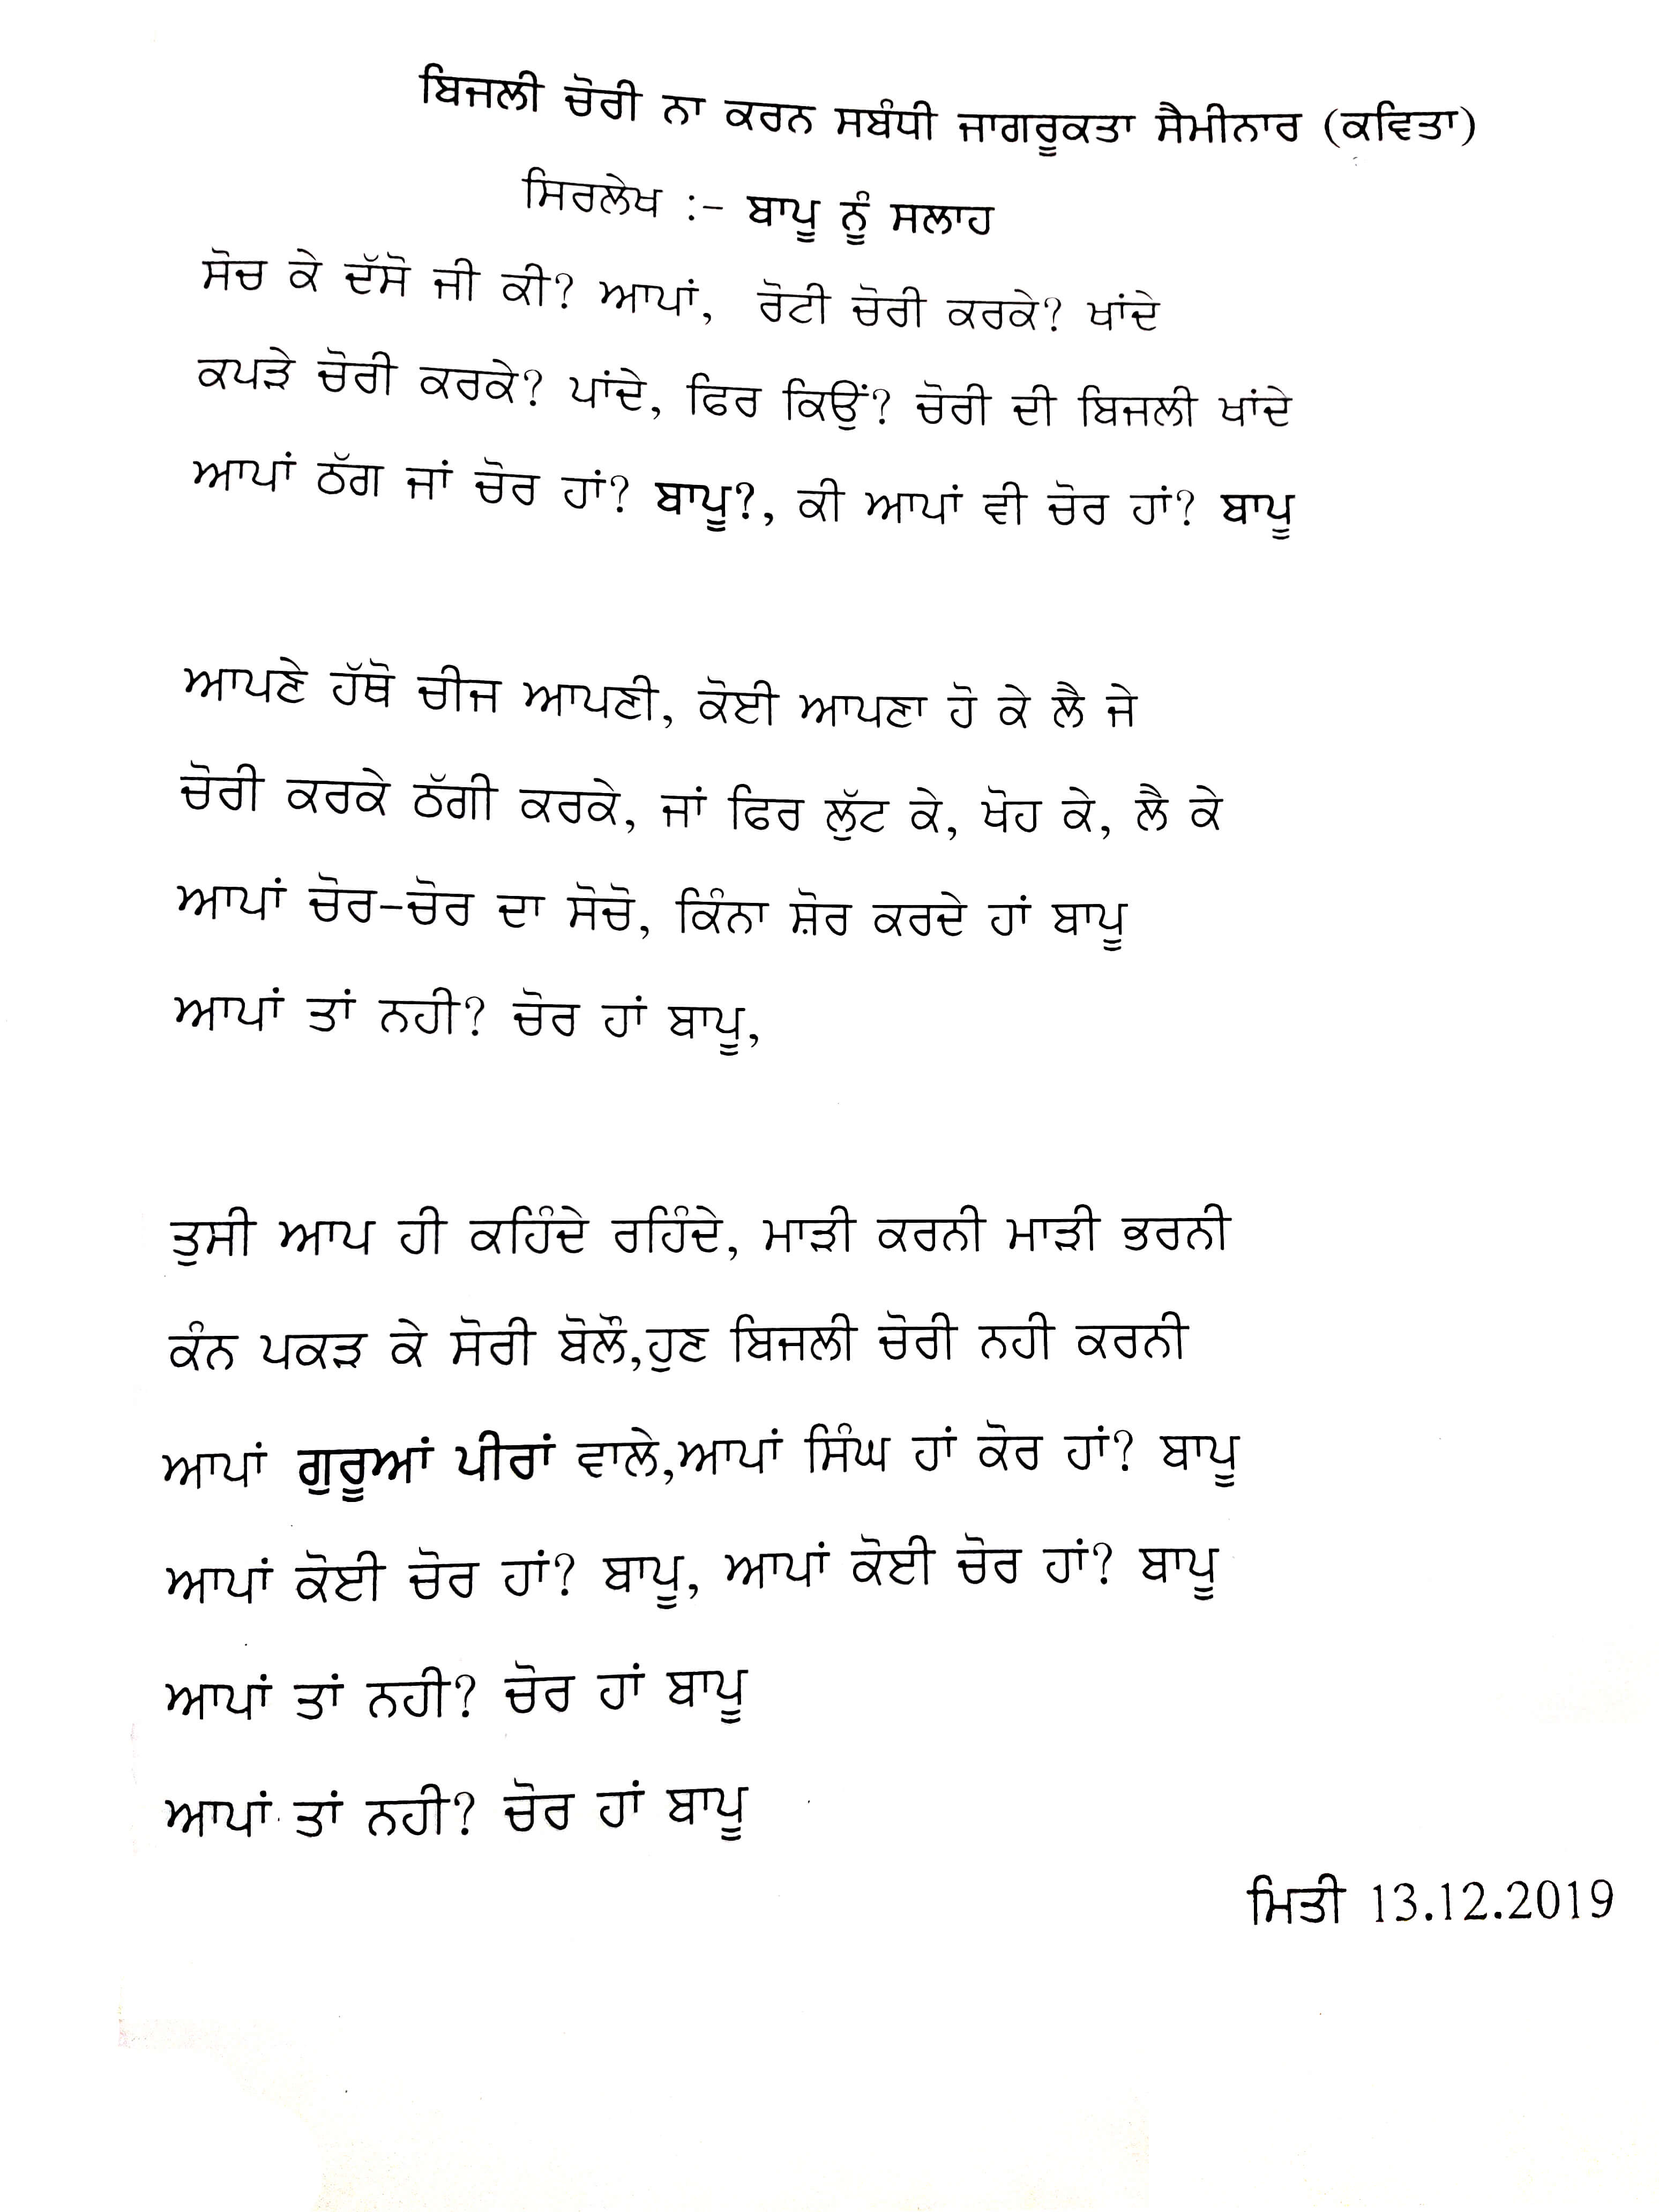 ਬਿਜਲੀ ਚੋਰੀ ਨਾ ਕਰਨ ਸਬੰਧੀ ਜਾਗਰੂਕਤਾ ਸੈਮੀਨਾਰ (ਕਵਿਤਾ)
ਸਿਰਲੇਖ :- ਬਾਪੂ ਨੂੰ ਸਲਾਹ
ਸੋਚ ਕੇ ਦੱਸੋ ਜੀ ਕੀ? ਆਪਾਂ, ਰੋਟੀ ਚੋਰੀ ਕਰਕੇ? ਖਾਂਦੇ
ਕਪੜੇ ਚੋਰੀ ਕਰਕੇ? ਪਾਂਦੇ, ਫਿਰ ਕਿਉਂ? ਚੋਰੀ ਦੀ ਬਿਜਲੀ ਖਾਂਦੇ
ਆਪਾਂ ਠੱਗ ਜਾਂ ਚੋਰ ਹਾਂ? ਬਾਪੂ?, ਕੀ ਆਪਾਂ ਵੀ ਚੋਰ ਹਾਂ? ਬਾਪੂ
ਆਪਣੇ ਹੱਥੋ ਚੀਜ ਆਪਣੀ, ਕੋਈ ਆਪਣਾ ਹੋ ਕੇ ਲੈ ਜੇ
ਚੋਰੀ ਕਰਕੇ ਠੱਗੀ ਕਰਕੇ, ਜਾਂ ਫਿਰ ਲੁੱਟ ਕੇ, ਖੋਹ ਕੇ, ਲੈ ਕੇ
ਆਪਾਂ ਚੋਰ-ਚੋਰ ਦਾ ਸੋਚੋ, ਕਿੰਨਾ ਸ਼ੋਰ ਕਰਦੇ ਹਾਂ ਬਾਪੂ
ਆਪਾਂ ਤਾਂ ਨਹੀ? ਚੋਰ ਹਾਂ ਬਾਪੂ,
ਤੁਸੀ ਆਪ ਹੀ ਕਹਿੰਦੇ ਰਹਿੰਦੇ, ਮਾੜੀ ਕਰਨੀ ਮਾੜੀ ਭਰਨੀ
ਕੰਨ ਪਕੜ ਕੇ ਸੋਰੀ ਬੋਲੋ,ਹੁਣ ਬਿਜਲੀ ਚੋਰੀ ਨਹੀ ਕਰਨੀ
ਆਪਾਂ ਗੁਰੂਆਂ ਪੀਰਾਂ ਵਾਲੇ,ਆਪਾਂ ਸਿੰਘ ਹਾਂ ਕੋਰ ਹਾਂ? ਬਾਪੂ
ਆਪਾਂ ਕੋਈ ਚੋਰ ਹਾਂ? ਬਾਪੂ, ਆਪਾਂ ਕੋਈ ਚੋਰ ਹਾਂ? ਬਾਪੂ
ਆਪਾਂ ਤਾਂ ਨਹੀ? ਚੋਰ ਹਾਂ ਬਾਪੂ
ਆਪਾਂ ਤਾਂ ਨਹੀ? ਚੋਰ ਹਾਂ ਬਾਪੂ
ਮਿਤੀ 13.12.2019